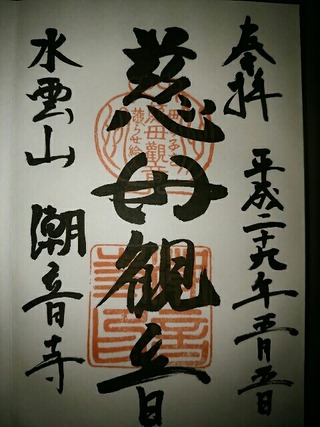 奉拝 平成二十九年五月五日
慈母観音
水雲山 潮音寺